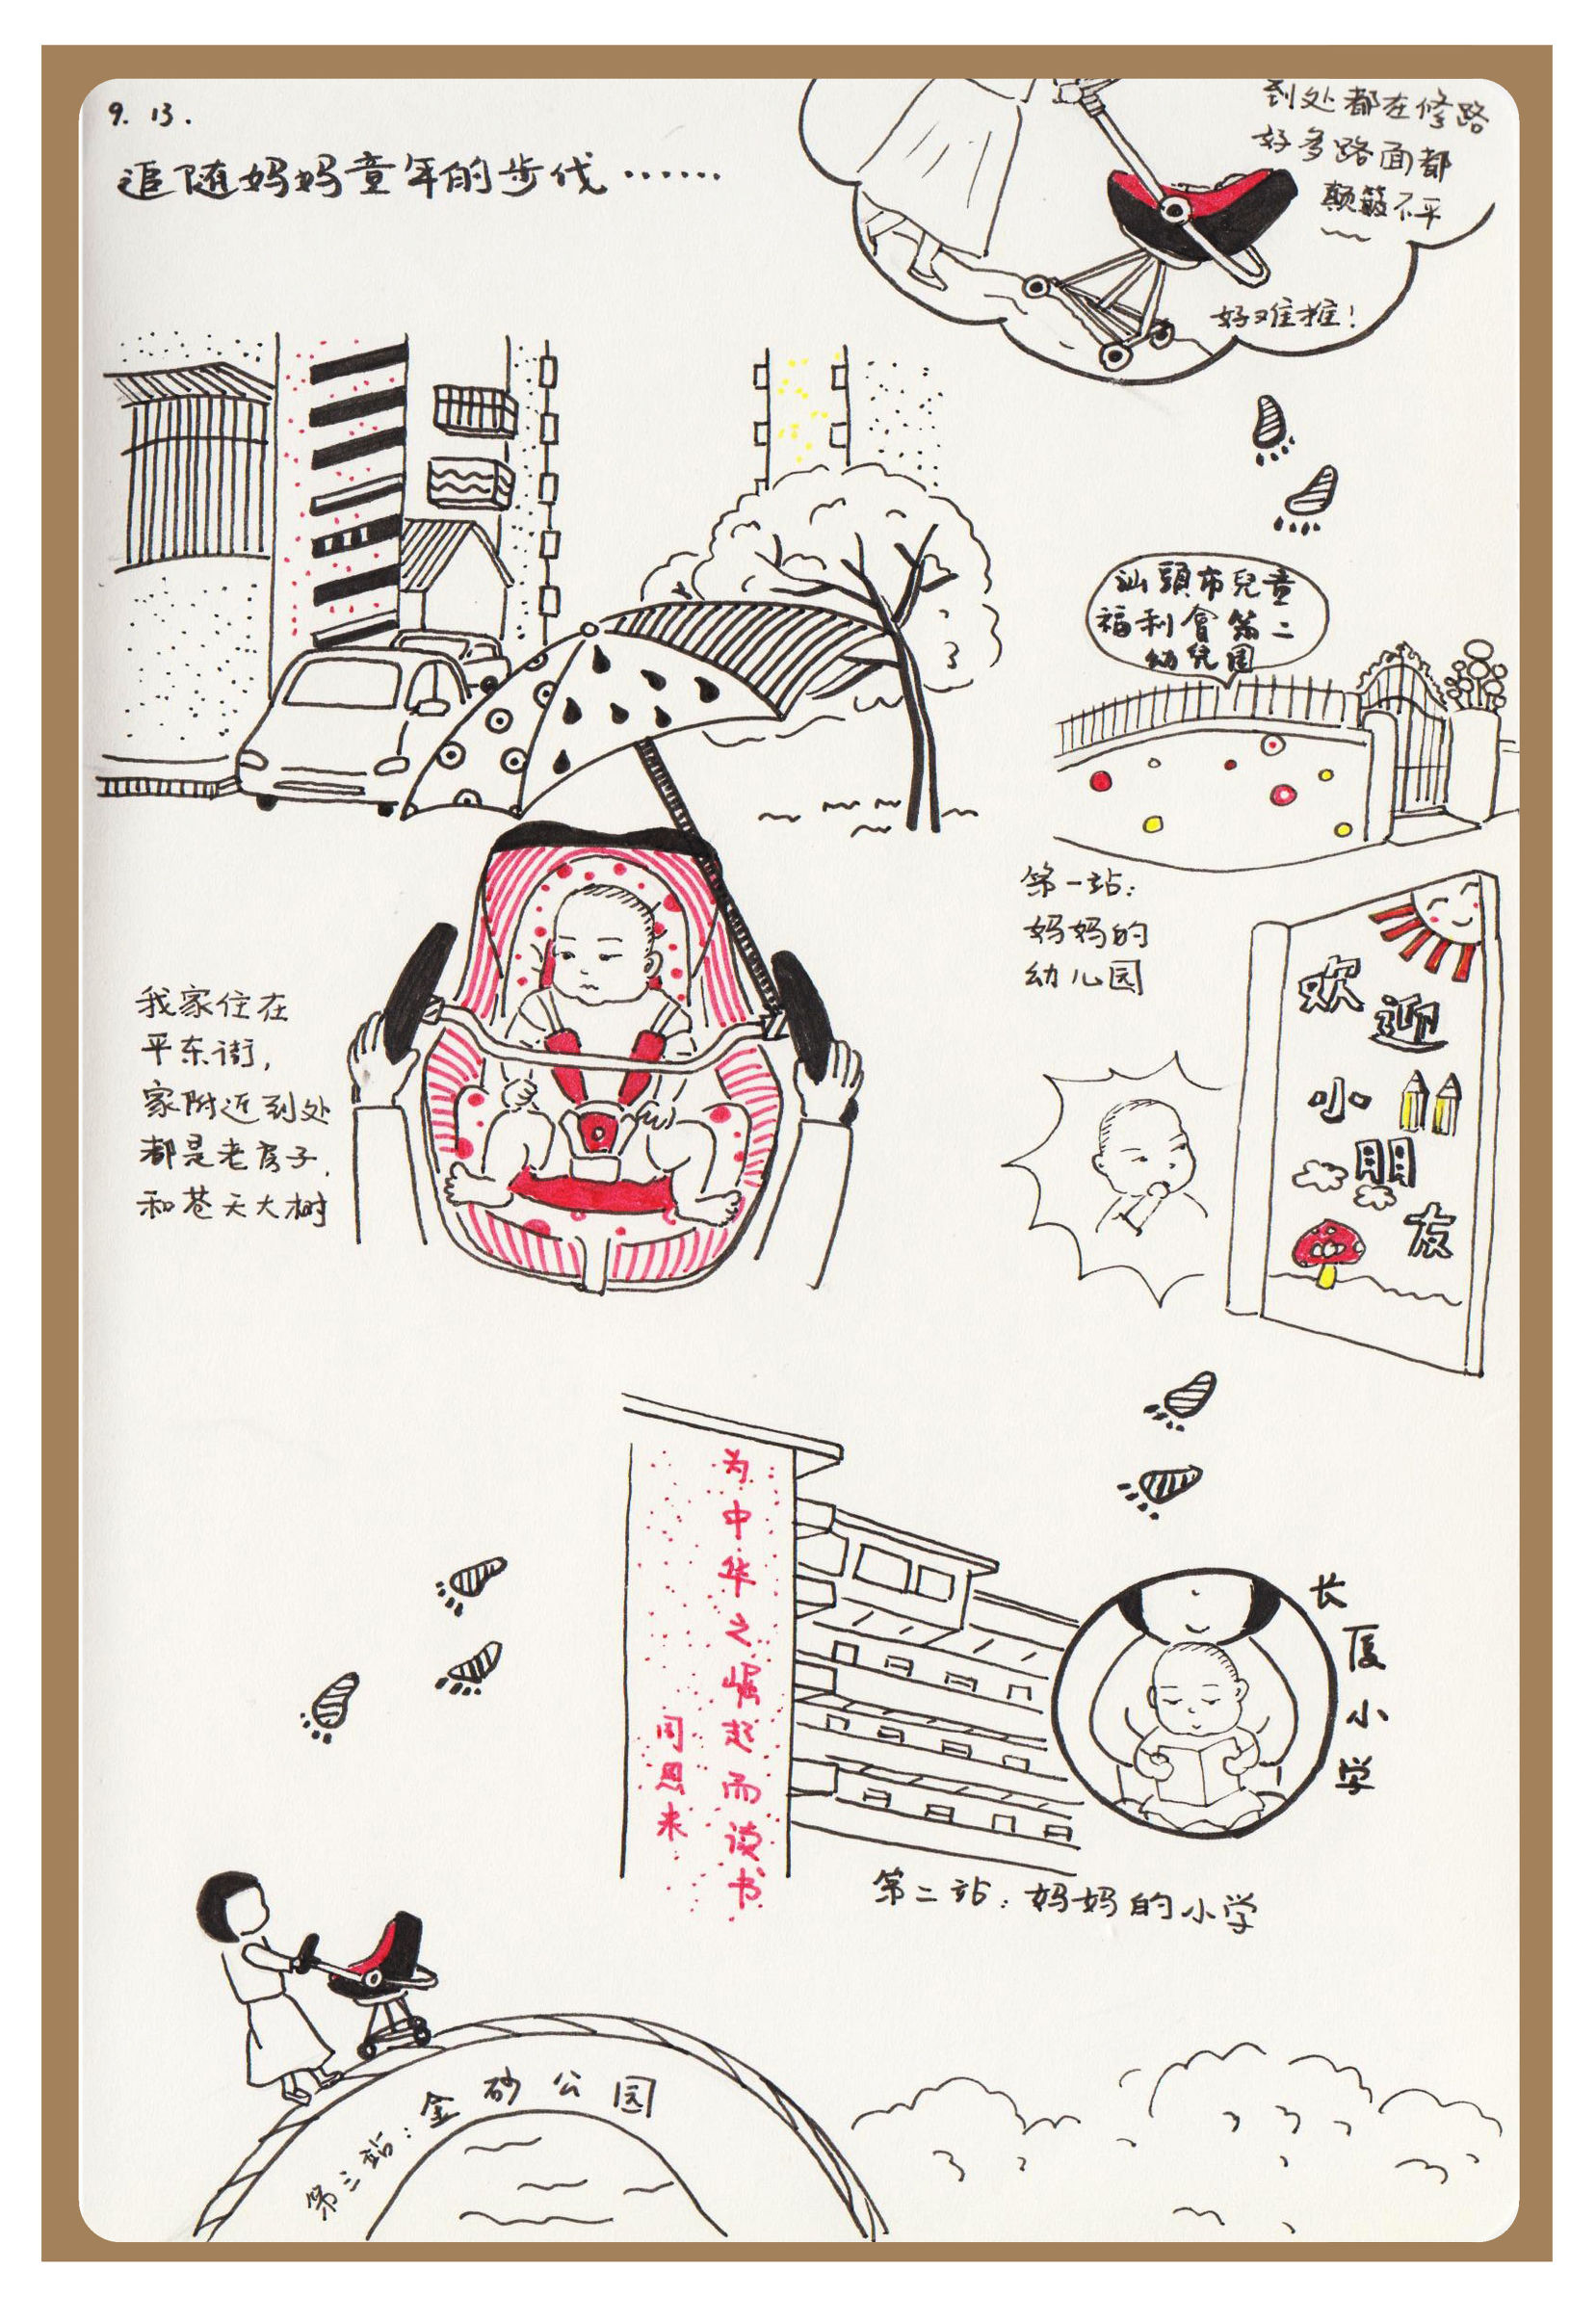 9. 13.
追随妈妈童年的步伐……
到处都在修路
好多路面都
颠簸不平
好难推！
汕頭市兒童
福利會第二
幼兒園
第一站：
妈妈的
幼儿园
欢
迎
小
朋
友
我家住在
平东街，
家附近到处
都是老房子，
和苍天大树
为中华之崛起而读书
周恩来
长厦小学
第二站：妈妈的小学
第三站：金砂公园